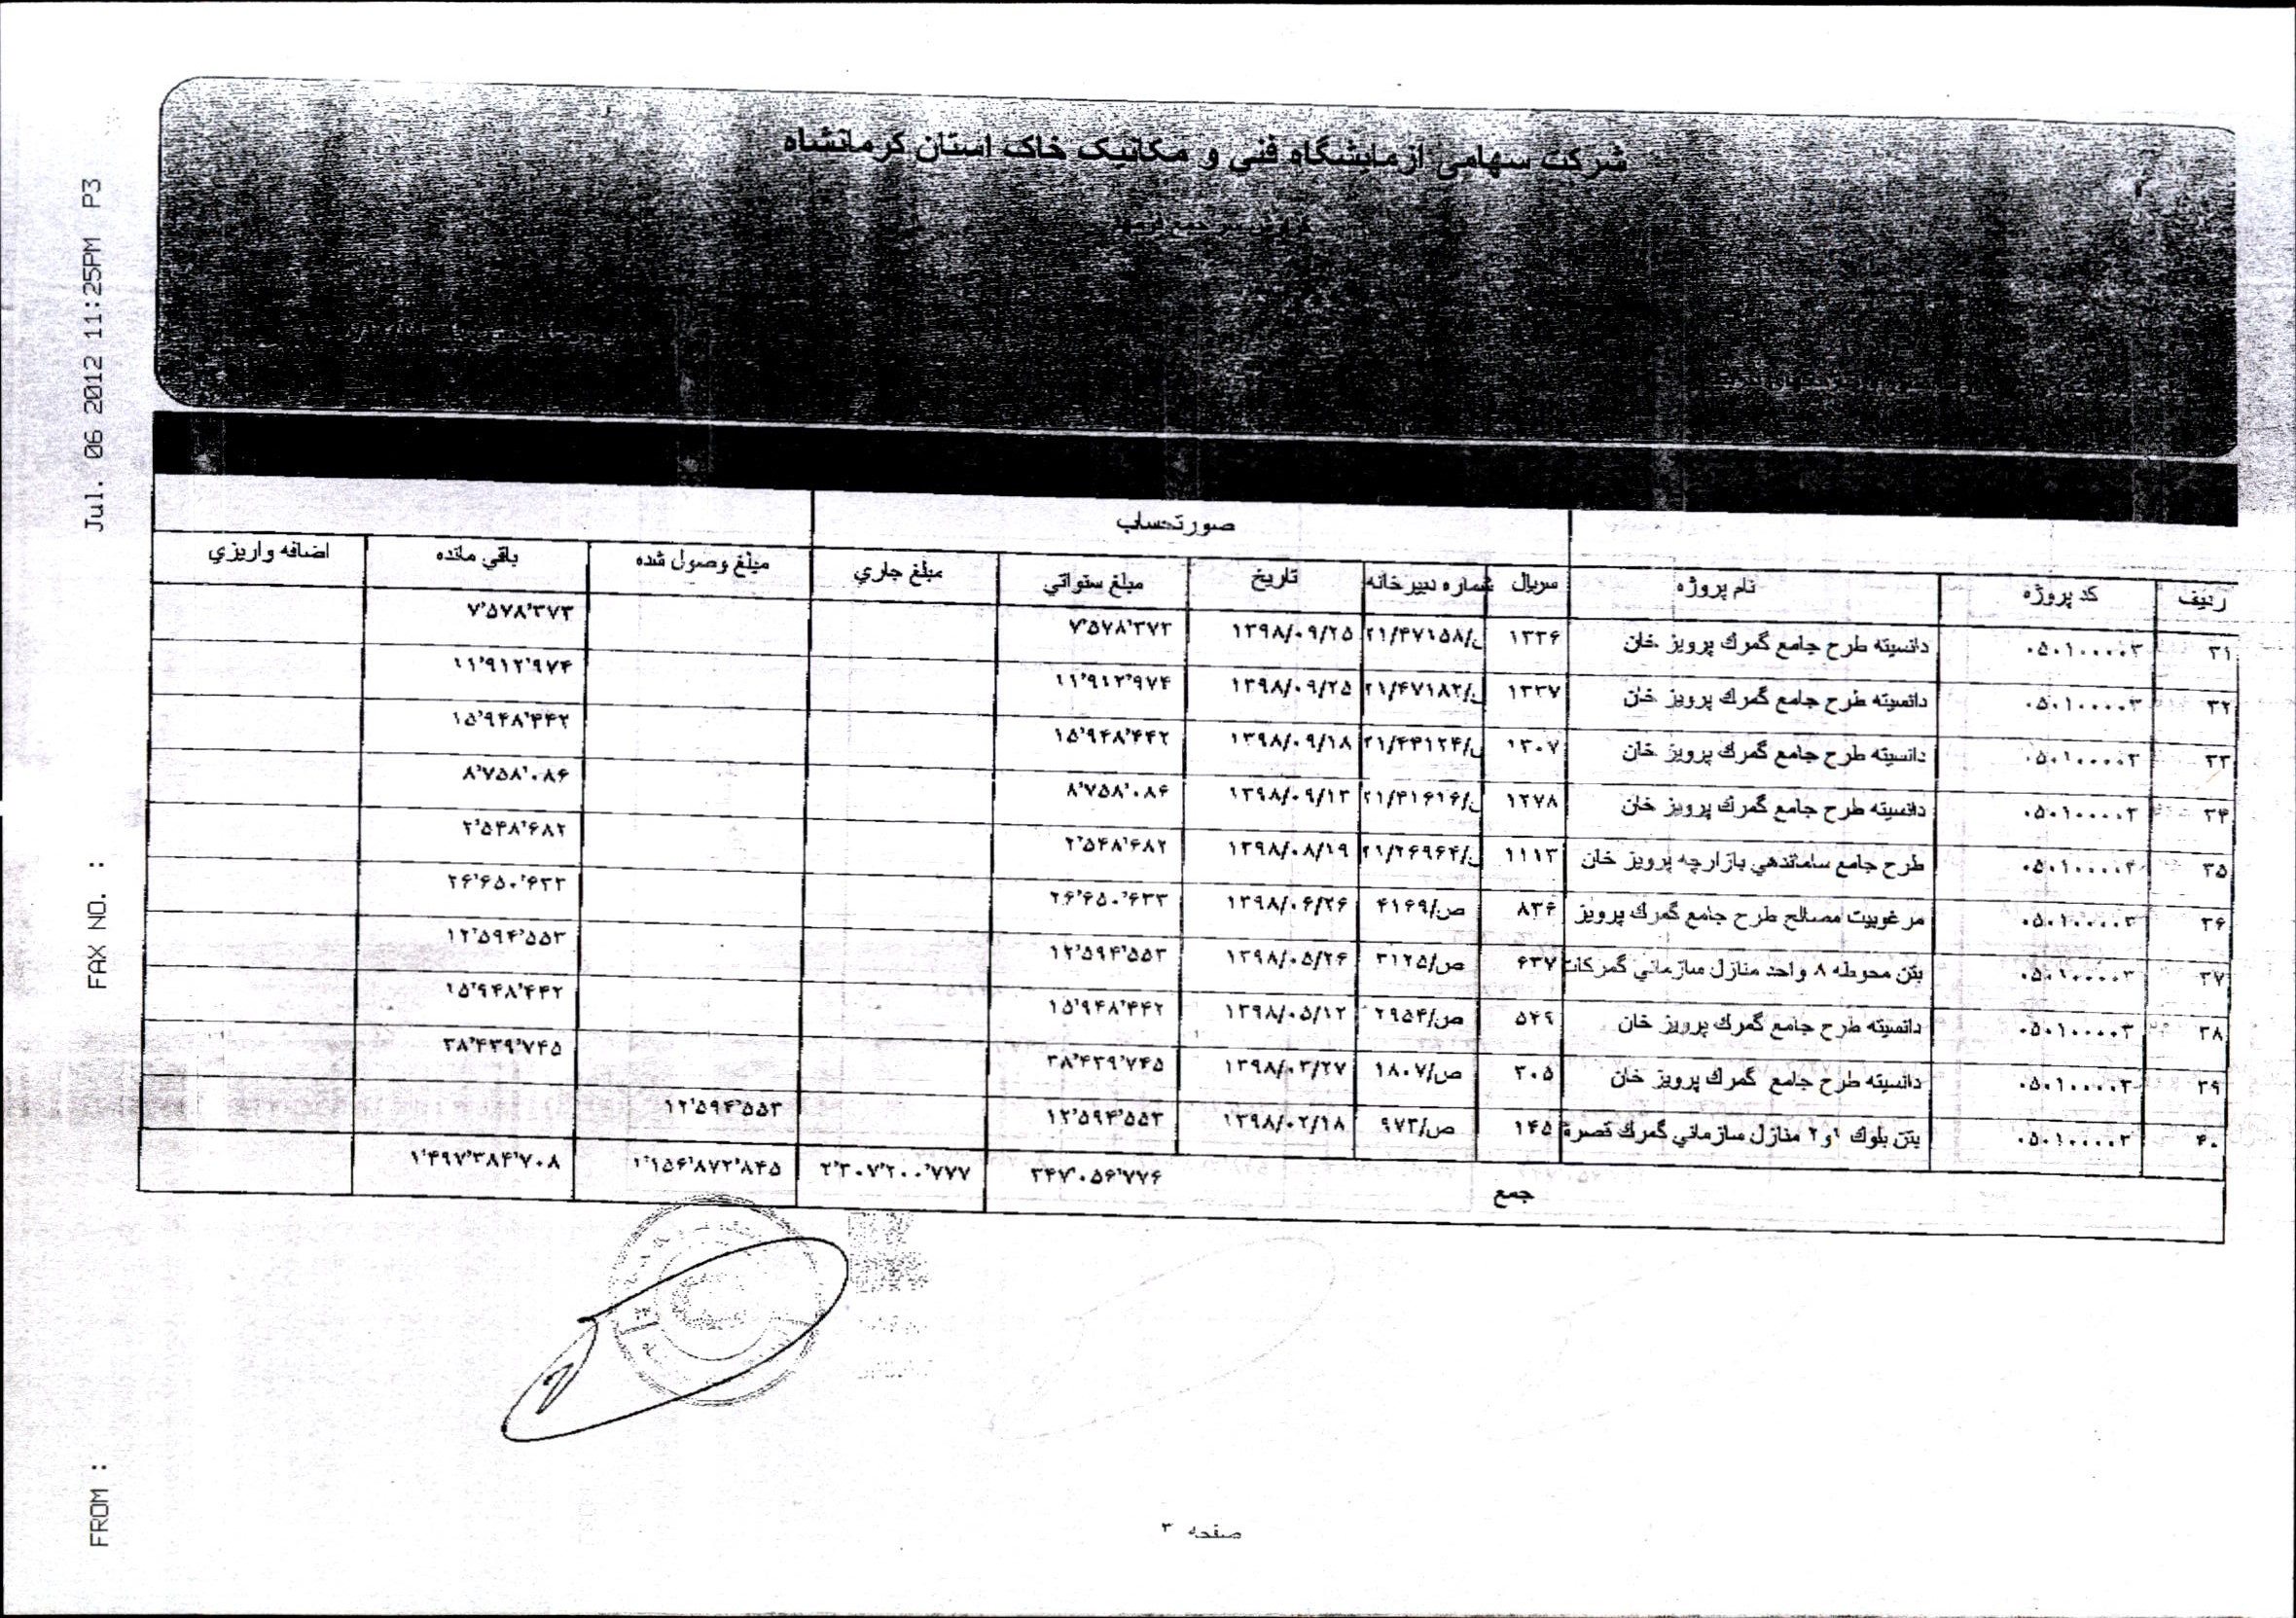 شرکت سهامی ازمایشگاه فنی و مکانیک خاک استان کرمانشاه
Jul. 06 2012 11:25PM P3
FAX NO. :
FROM :
صورتحساب
ردیف کد پروژه نام پروژه سریال شماره دبیرخانه تاریخ مبلغ سنواتي مبلغ جاري مبلغ وصول شده باقي مانده اضافه واريزي
۳۱ ۰۵۰۱۰۰۰۰۳ دانسیته طرح جامع گمرك پرویز خان ۱۳۳۶ ۲۱/۴۷۱۵۸/ل ۱۳۹۸/۰۹/۲۵ ۷٬۵۷۸٬۳۷۳ ۷٬۵۷۸٬۳۷۳
۳۲ ۰۵۰۱۰۰۰۰۳ دانسیته طرح جامع گمرك پرویز خان ۱۳۳۷ ۲۱/۴۷۱۸۲/ل ۱۳۹۸/۰۹/۲۵ ۱۱٬۹۱۲٬۹۷۴ ۱۱٬۹۱۲٬۹۷۴
۳۳ ۰۵۰۱۰۰۰۰۳ دانسیته طرح جامع گمرك پرویز خان ۱۳۰۷ ۲۱/۴۴۱۲۴/ل ۱۳۹۸/۰۹/۱۸ ۱۵٬۹۴۸٬۴۴۲ ۱۵٬۹۴۸٬۴۴۲
۳۴ ۰۵۰۱۰۰۰۰۳ دانسیته طرح جامع گمرك پرویز خان ۱۲۷۸ ۲۱/۴۱۶۱۶/ل ۱۳۹۸/۰۹/۱۳ ۸٬۷۵۸٬۰۸۶ ۸٬۷۵۸٬۰۸۶
۳۵ ۰۵۰۱۰۰۰۰۴ طرح جامع ساماندهي بازارچه پرویز خان ۱۱۱۳ ۲۱/۲۶۹۶۴/ل ۱۳۹۸/۰۸/۱۹ ۲٬۵۴۸٬۶۸۲ ۲٬۵۴۸٬۶۸۲
۳۶ ۰۵۰۱۰۰۰۰۳ مرغوبیت مصالح طرح جامع گمرك پرویز ۸۳۶ ص/۴۱۶۹ ۱۳۹۸/۰۶/۲۶ ۲۶٬۶۵۰٬۶۳۳ ۲۶٬۶۵۰٬۶۳۳
۳۷ ۰۵۰۱۰۰۰۰۳ بتن محوطه ۸ واحد منازل سازماني گمرکات ۶۳۷ ص/۳۱۲۵ ۱۳۹۸/۰۵/۲۶ ۱۲٬۵۹۴٬۵۵۳ ۱۲٬۵۹۴٬۵۵۳
۳۸ ۰۵۰۱۰۰۰۰۳ دانسیته طرح جامع گمرك پرویز خان ۵۴۹ ص/۲۹۵۴ ۱۳۹۸/۰۵/۱۲ ۱۵٬۹۴۸٬۴۴۲ ۱۵٬۹۴۸٬۴۴۲
۳۹ ۰۵۰۱۰۰۰۰۳ دانسیته طرح جامع گمرك پرویز خان ۳۰۵ ص/۱۸۰۷ ۱۳۹۸/۰۳/۲۷ ۳۸٬۴۳۹٬۷۴۵ ۳۸٬۴۳۹٬۷۴۵
۴۰ ۰۵۰۱۰۰۰۰۳ بتن بلوك ۱و۲ منازل سازماني گمرك قصرة ۱۴۵ ص/۹۷۳ ۱۳۹۸/۰۲/۱۸ ۱۲٬۵۹۴٬۵۵۳ ۱۲٬۵۹۴٬۵۵۳
جمع ۳۴۷٬۰۵۶٬۷۷۶ ۲٬۳۰۷٬۲۰۰٬۷۷۷ ۱٬۱۵۶٬۸۷۲٬۸۴۵ ۱٬۴۹۷٬۳۸۴٬۷۰۸
صفحه ۳